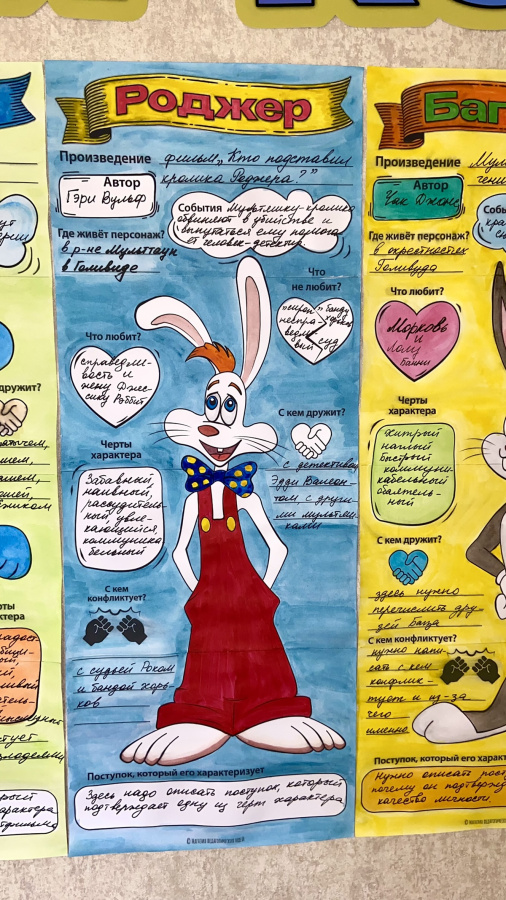 Роджер
Произведение фильм „Кто подставил
кролика Роджера?"
Автор
Гэри Вульф
События Мультяшку-кролика
обвиняют в убийстве и
выпутаться ему помога-
ет человек-детектив.
Где живёт персонаж?
в р-не Мультаун
в Голивуде
Что
не любит?
несправедли
вый суд
Что любит?
справедли-
вость и
жену Джес-
сику Роббит
С кем дружит?
с детективом
Эдди Валеон-
том с други-
ми мультяш-
ками
Черты
характера
Забавный,
наивный,
рассудитель-
ный, увле-
кающийся,
коммуника
бельный
С кем
конфликтует?
с судьёй Роком
и бандой хорь-
ков
Поступок, который его характеризует
Здесь надо описать поступок, который
подтверждает одну из черт характера
Баг
Произведение Мул
гени
Автор
Чак Джонс
Собы
Где живёт персонаж?
в окрестностях
Голивуда
Что любит?
Морковь
и
Лолу
Банни
Черты
характера
Хитрый
наглый
быстрый
коммуни-
кабельный
обаятель-
ный
С кем дружит?
здесь нужно
перечислить дру-
зей Багза
С кем конфликтует?
нужно напи-
сать с кем
конфлик-
тует и из-за
чего
именно
Поступок, который его характ
Нужно описать пост
почему он подтвержд
качество личности
дружит?
ерты
ктера